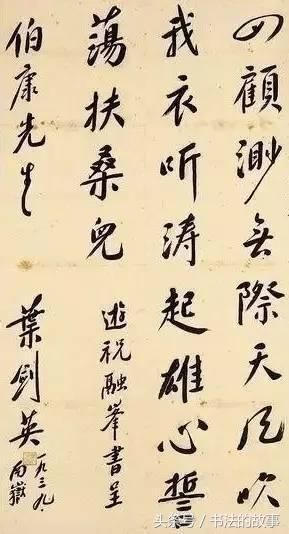 四顧渺無際天风吹
我衣听涛起雄心誓
蕩扶桑兒
遊祝融峯書呈
伯康先生
葉劍英
一九三九
南嶽
头条号 / 书法的故事